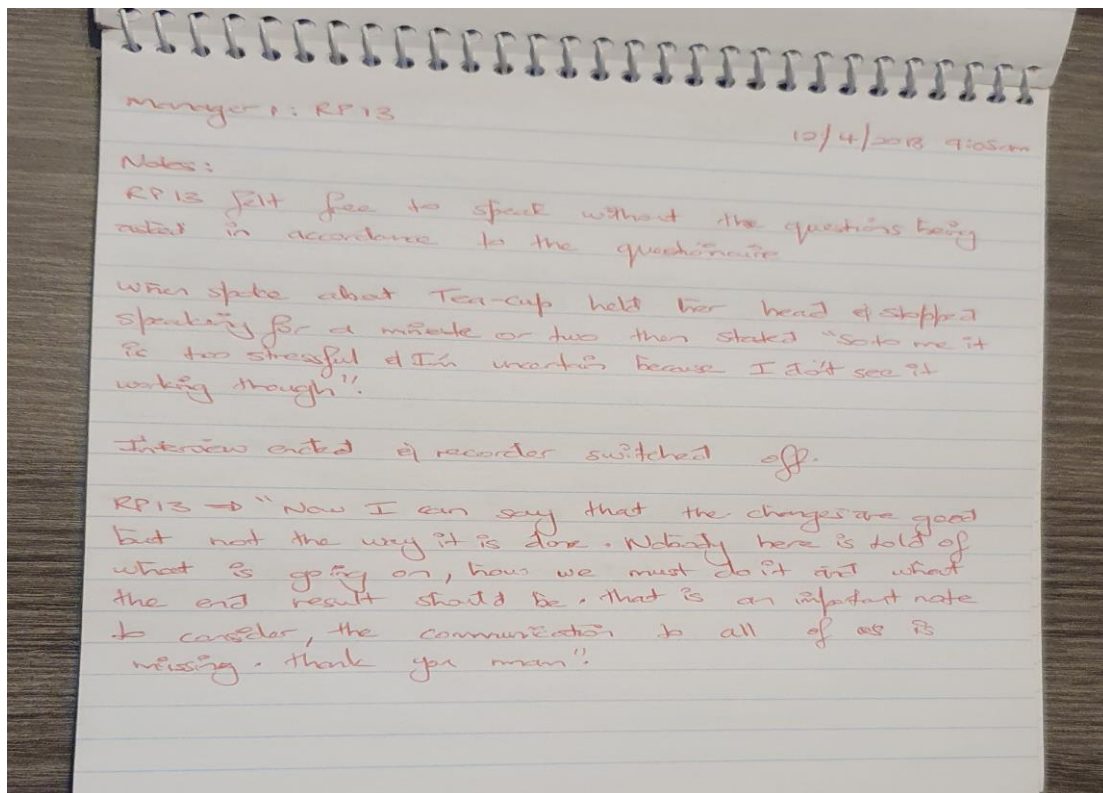 Manager 1: RP13
12/4/2018 9:05am
Notes:
RP13 felt free to speak without the questions being
in accordance to the questionnaire
When spoke about Tea-cup held her head & stopped
speaking for a minute or two then stated "So to me it
is too stressful & I'm uncertain because I don't see it
working though".
Interview ended & recorder switched off.
RP13 → "Now I can say that the changes are good
but not the way it is done. Nobody here is told of
what is going on, how we must do it and what
the end result should be. That is an important note
to consider, the communication to all of us is
missing. Thank you mam".